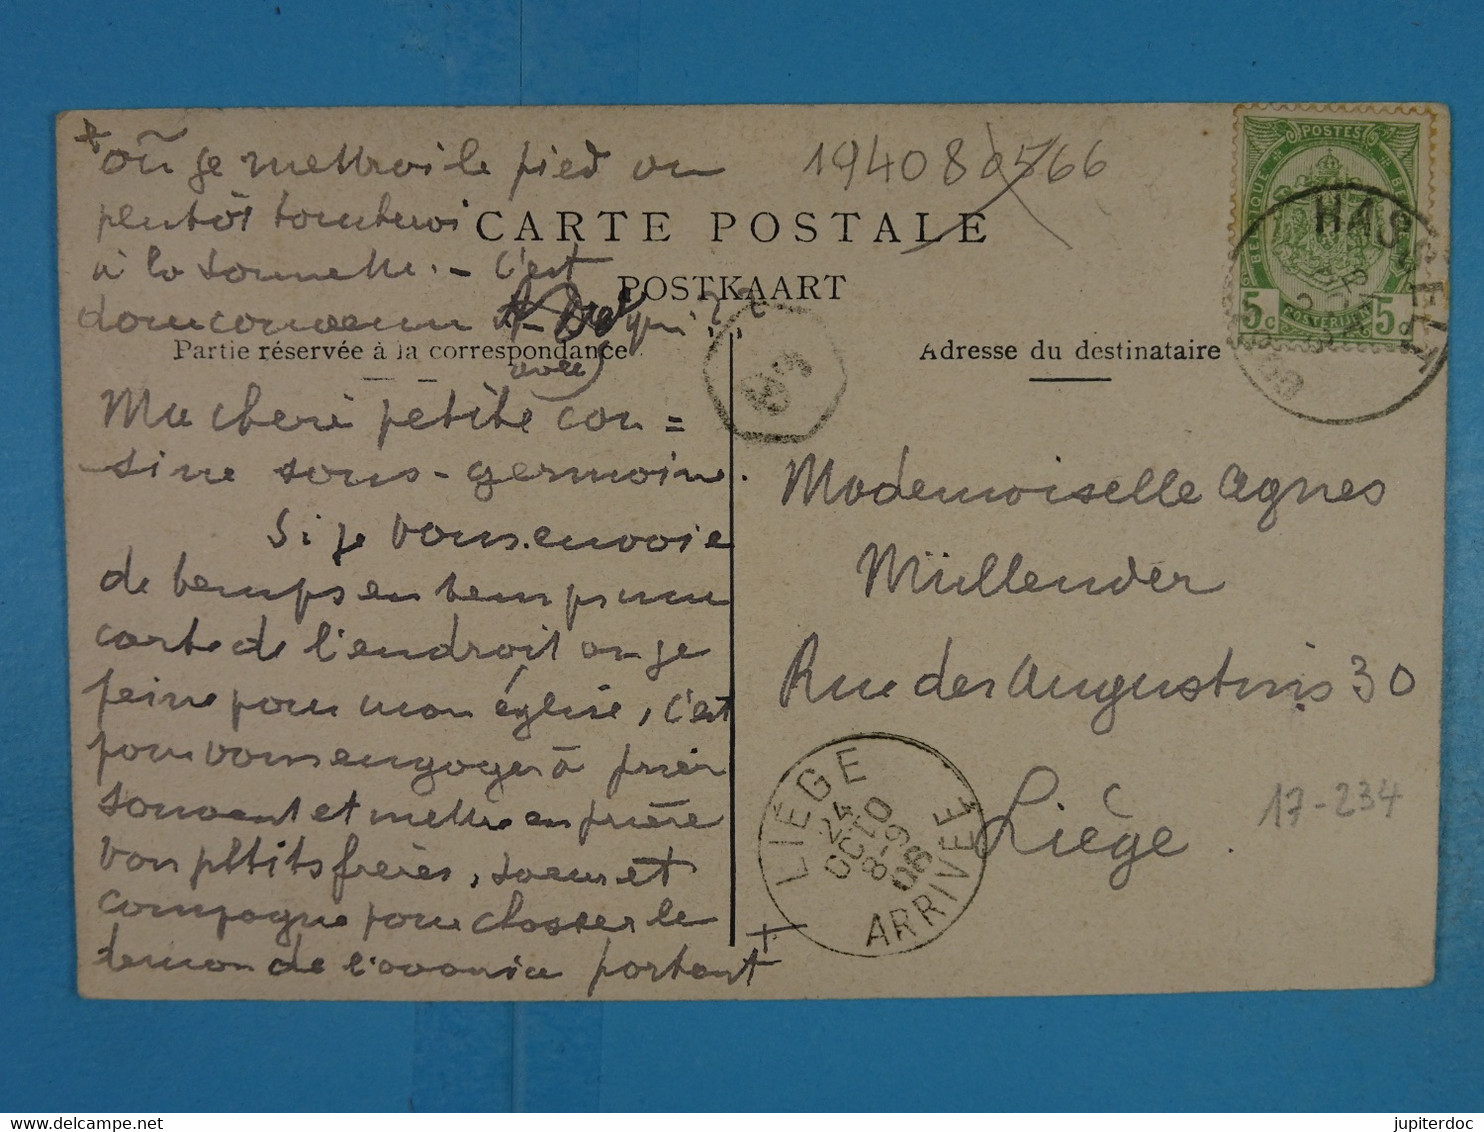 + où je mettrai le pied ou
plutôt toucherai
à la sonnette. - C'est
donc convenu
avec
19408 566
CARTE POSTALE
POSTKAART
Partie réservée à la correspondance
Adresse du destinataire
Ma chère petite cou=
sine sous-germaine.
Si je vous envoie
de temps en temps une
carte de l'endroit où je
peine pour mon église, c'est
pour vous engager à prier
souvent et mettre en prière
vos ptits frères, soeurs et
compagne pour chasser le
démon de l'avarice partout +
Mademoiselle Agnes
Müllender
Rue des Augustins 30
Liège.
17-234
POSTES
BELGIQUE
5c
5c
HASSELT
LIEGE
24
OCTO
8-9
06
ARRIVÉE
jupiterdoc